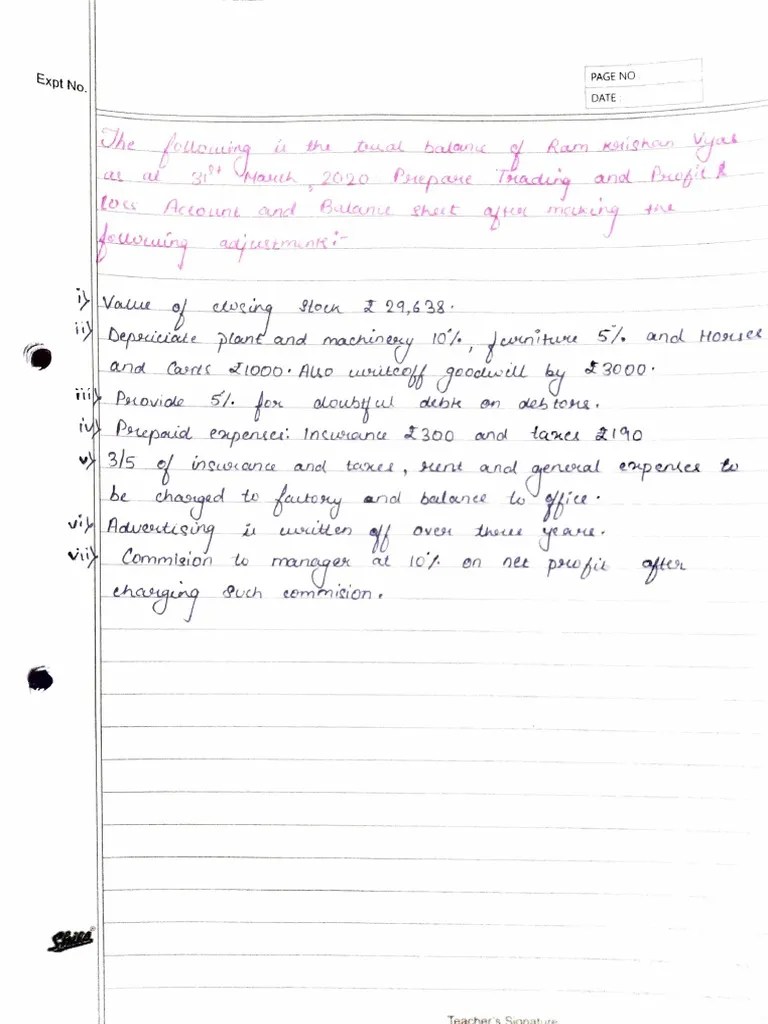 Expt No.
PAGE NO
DATE :
The following is the trial balance of Ram Krishan Vyas
as at 31st March, 2020 Prepare Trading and Profit &
loss Account and Balance sheet after making the
following adjustments:-
i) Value of closing stock ₹ 29,638.
ii) Depriciate plant and machinery 10%, furniture 5% and Horses
and Carts ₹1000. Also writeoff goodwill by ₹3000.
iii) Provide 5% for doubtful debts on debtors.
iv) Prepaid expenses: Insurance ₹300 and taxes ₹190
v) 3/5 of insurance and taxes, rent and general expenses to
be charged to factory and balance to office.
vi) Advertising is written off over three years.
vii) Commision to manager at 10% on net profit after
charging such commision.
Teacher's Signature